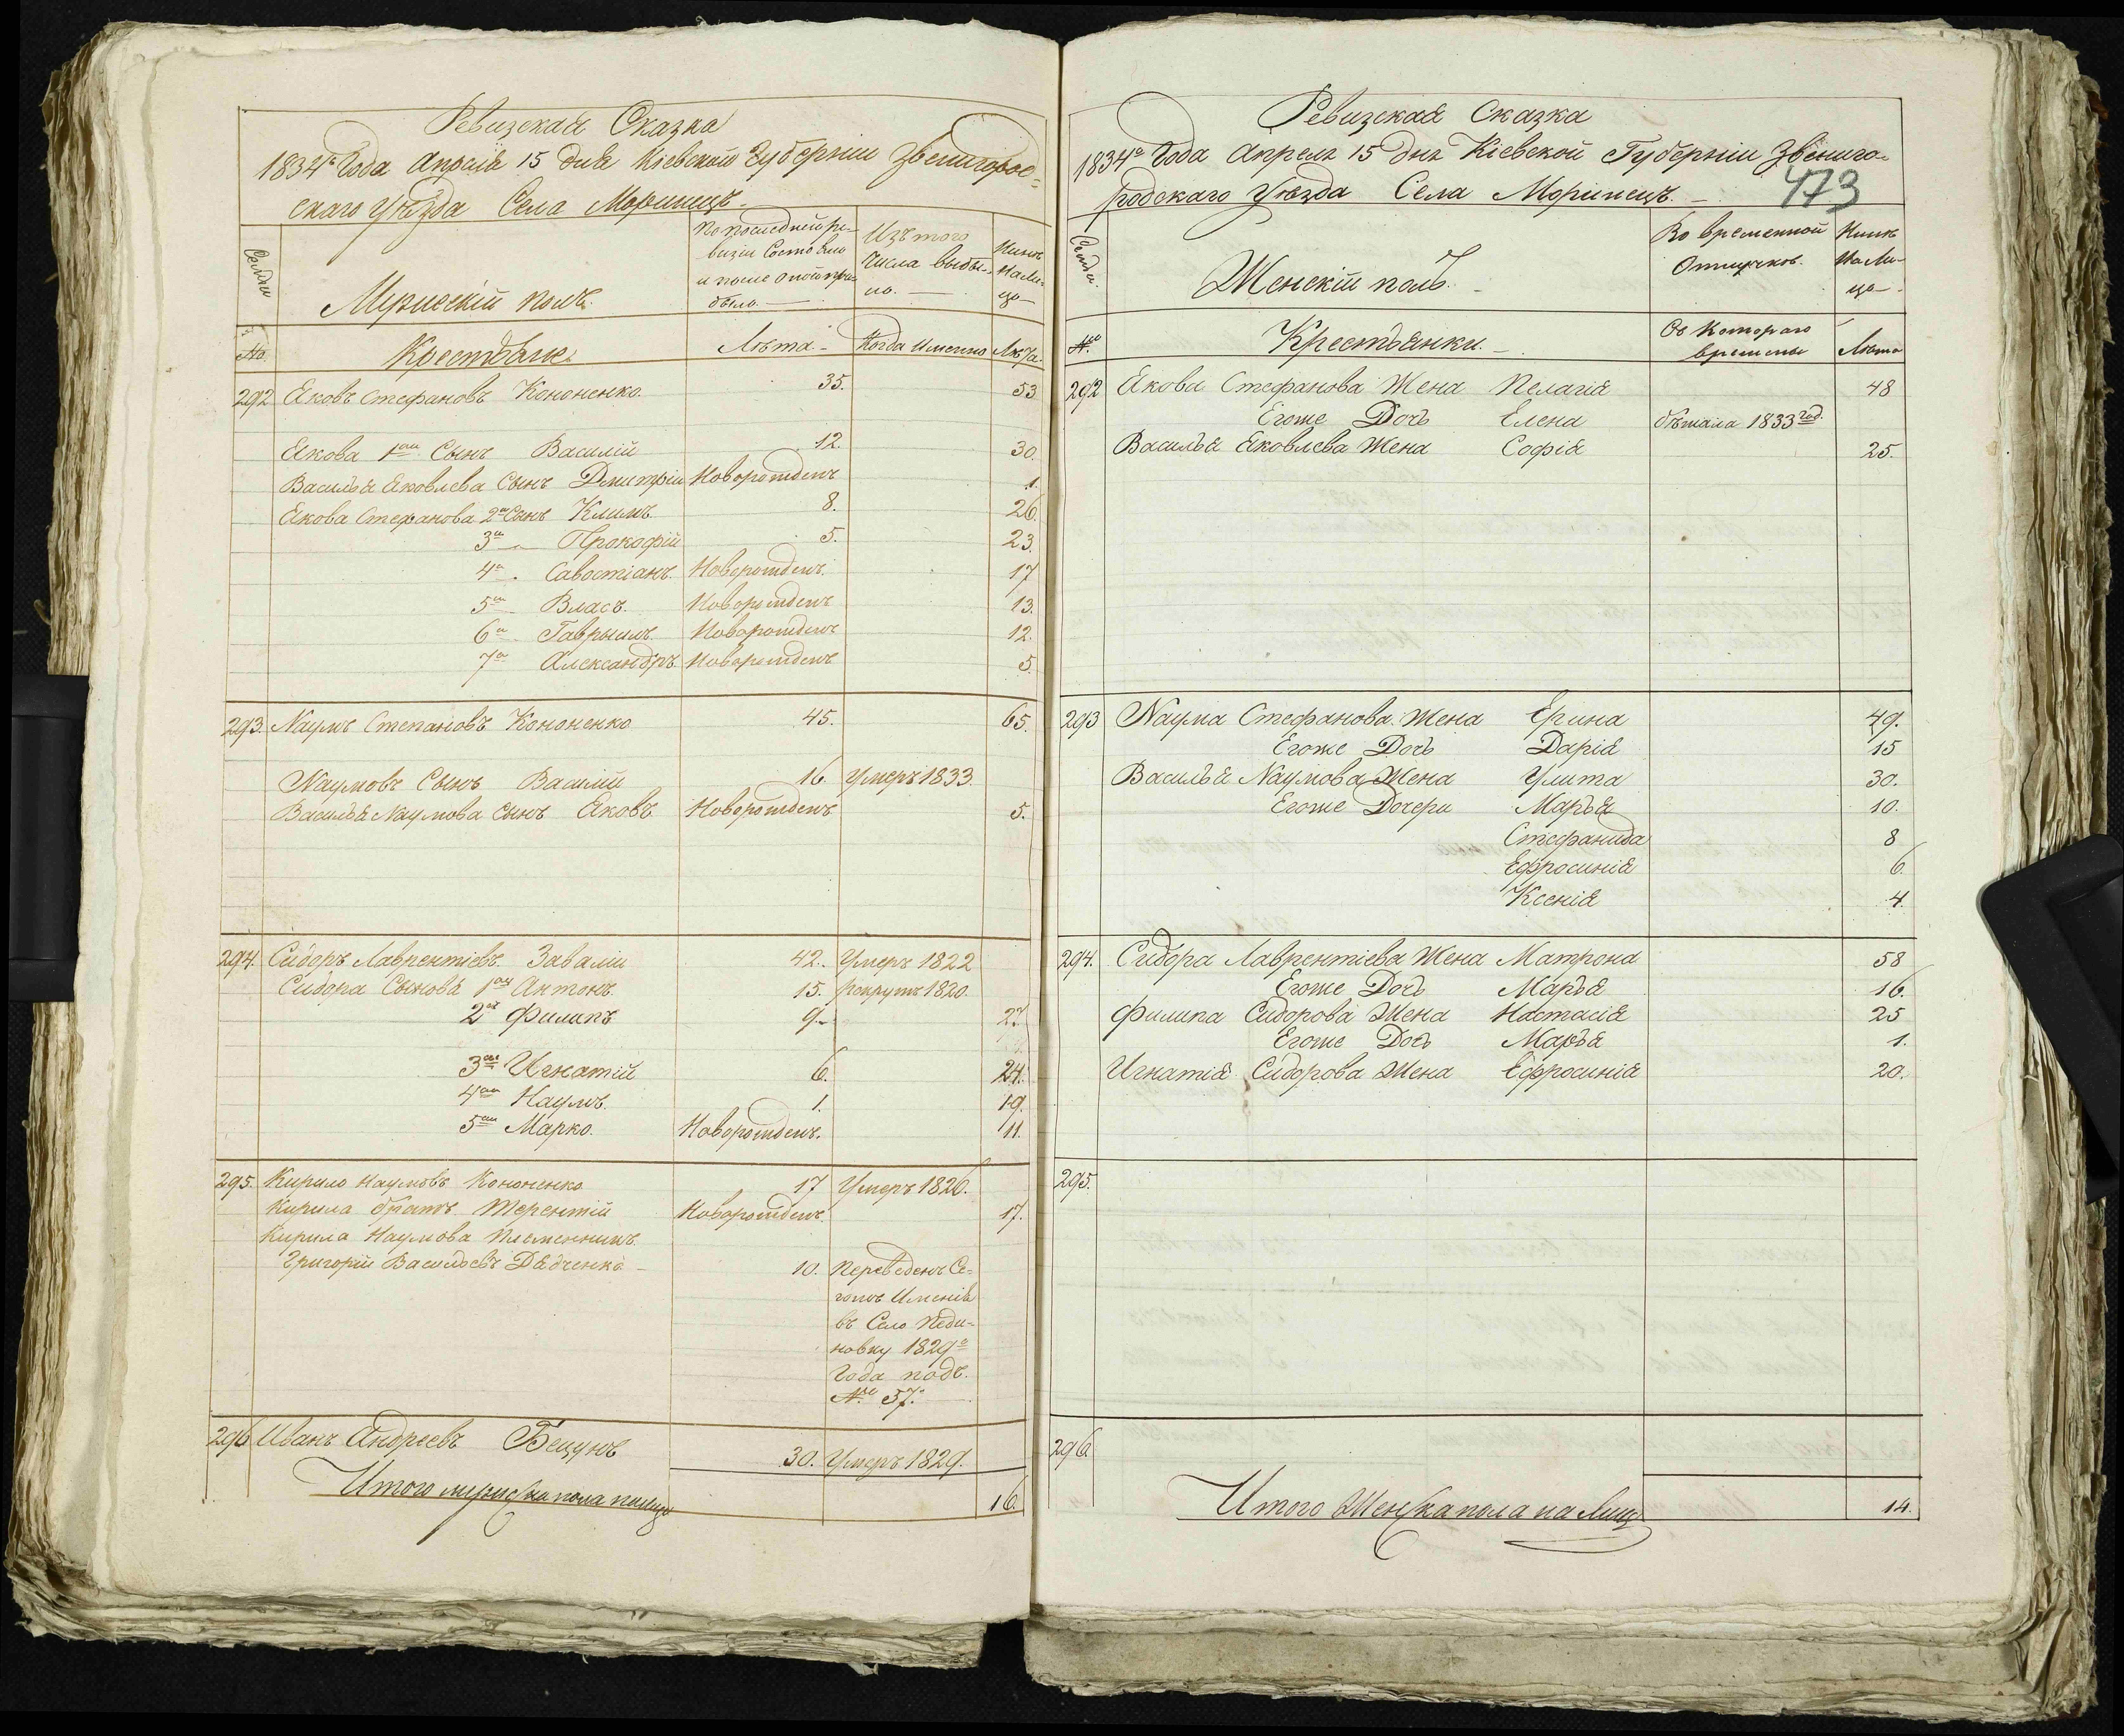 Ревизская Сказка
1834го Года Апреля 15 дня Кіевской Губерніи Звенигород=
скаго Уѣзда Села Моринецъ.
Семьи
Мужескій полъ.
По последней ре-
визіи Состояло
и после оной при-
было.
Изъ того
Числа выбы-
ло.
Ныне
На Ли-
цо
No
Крестьяне
Лѣта.
Когда Именно
Лѣта
292 Яковъ Стефановъ Кононенко. 35. 53
Якова 1ый Сынъ Василій 12. 30.
Василья Яковлева Сынъ Дмитрій Новорожденъ 1.
Якова Стефанова 2й Сынъ Климъ 8. 26.
3й Прокофій 5. 23.
4й Савостіанъ. Новорожденъ. 17
5ый Власъ. Новорожденъ 13.
6й Гаврыилъ Новорожденъ 12.
7й Александръ. Новорожденъ 5.
293. Наумъ Степановъ Кононенко 45. 65.
Наумовъ Сынъ Василій 16 Умеръ 1833.
Василья Наумова Сынъ Яковъ Новорожденъ 5.
294. Сидоръ Лаврентіевъ Завалій 42. Умеръ 1822
Сидора Сыновья 1ый Антонъ. 15. рекрутъ 1820.
2ой Филипъ 9. 27
3ій Игнатій 6. 24.
4ый Наумъ. 1. 19.
5ый Марко. Новорожденъ. 11.
295. Кирило Наумовъ Кононенко 17 Умеръ 1826.
Кирила братъ Терентій Новорожденъ. 17.
Кирила Наумова Племенникъ
Григорій Васильевъ Дядченко 10. Переведенъ Се-
гожъ Именія
въ Село Педи-
новку 1829го
Года подъ.
No 57.
296 Иванъ Андреевъ Бецунъ 30. Умеръ 1829.
Итого мужеска пола налицо 16.
Ревизская Сказка
1834го Года Апреля 15 дня Кіевской Губерніи Звениго-
родскаго Уѣзда Села Моринецъ.
473
Семьи.
Женскій полъ.
Во временной
Отлучков.
Ныне
На Ли-
цо
No
Крестьянки.
Съ Котораго
времены
Лѣта
292 Якова Стефанова Жена Пелагія 48
Егоже Дочь Елена бѣжала 1833 год.
Василья Яковлева Жена Софія 25.
293 Наума Стефанова Жена Ерина 49.
Егоже Дочь Дарія 15
Василья Наумова Жена Улита 30.
Егоже Дочери Марья 10.
Стефанида 8
Ефросинія 6.
Ксенія 4.
294. Сидора Лаврентіева Жена Матрона 58
Егоже Дочь Марья 16.
Филипа Сидорова Жена Настасія 25
Егоже Дочь Марья 1.
Игнатія Сидорова Жена Ефросинія 20.
295.
296.
Итого Женска пола на Лицо 14.